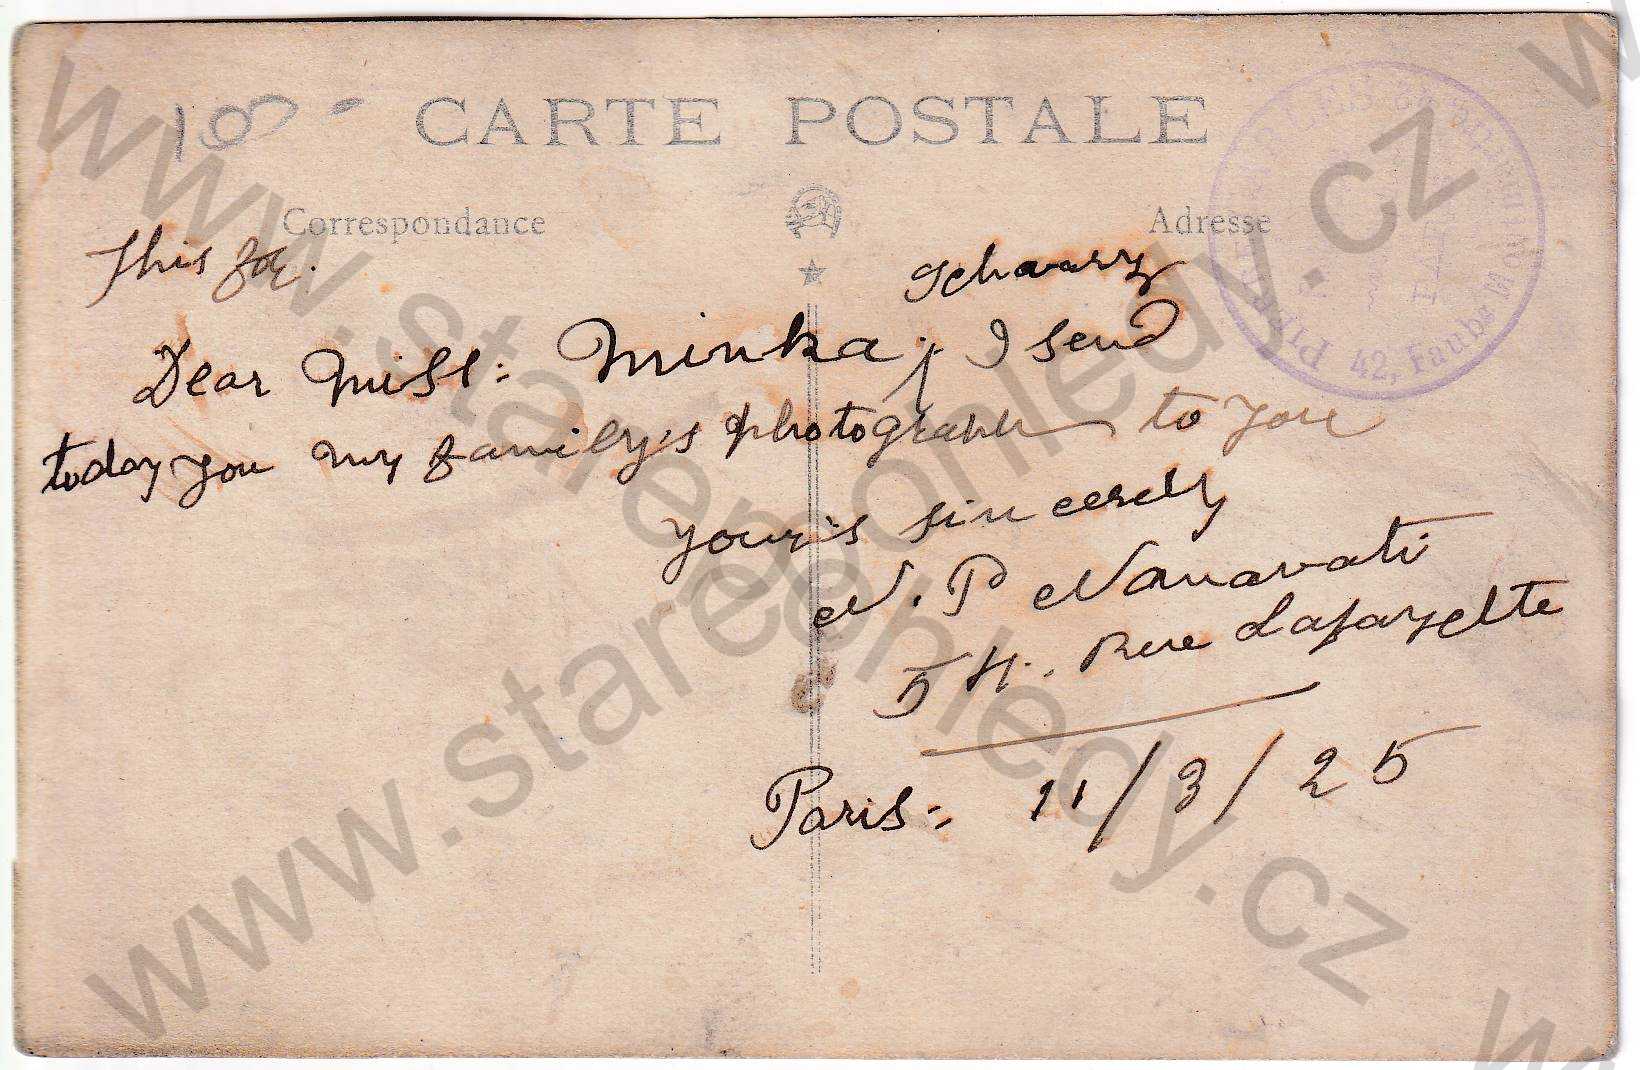 CARTE POSTALE
Correspondance
Adresse
This for.
Schwarz
Dear Miss: Minka, I send
today you my family's photograph to you
your's sincerely
N. P Nanavati
54.. Rue Lafayelte
Paris:, 11/3/25
42, Faubg M
www.starepohledy.cz
www.starepohledy.cz